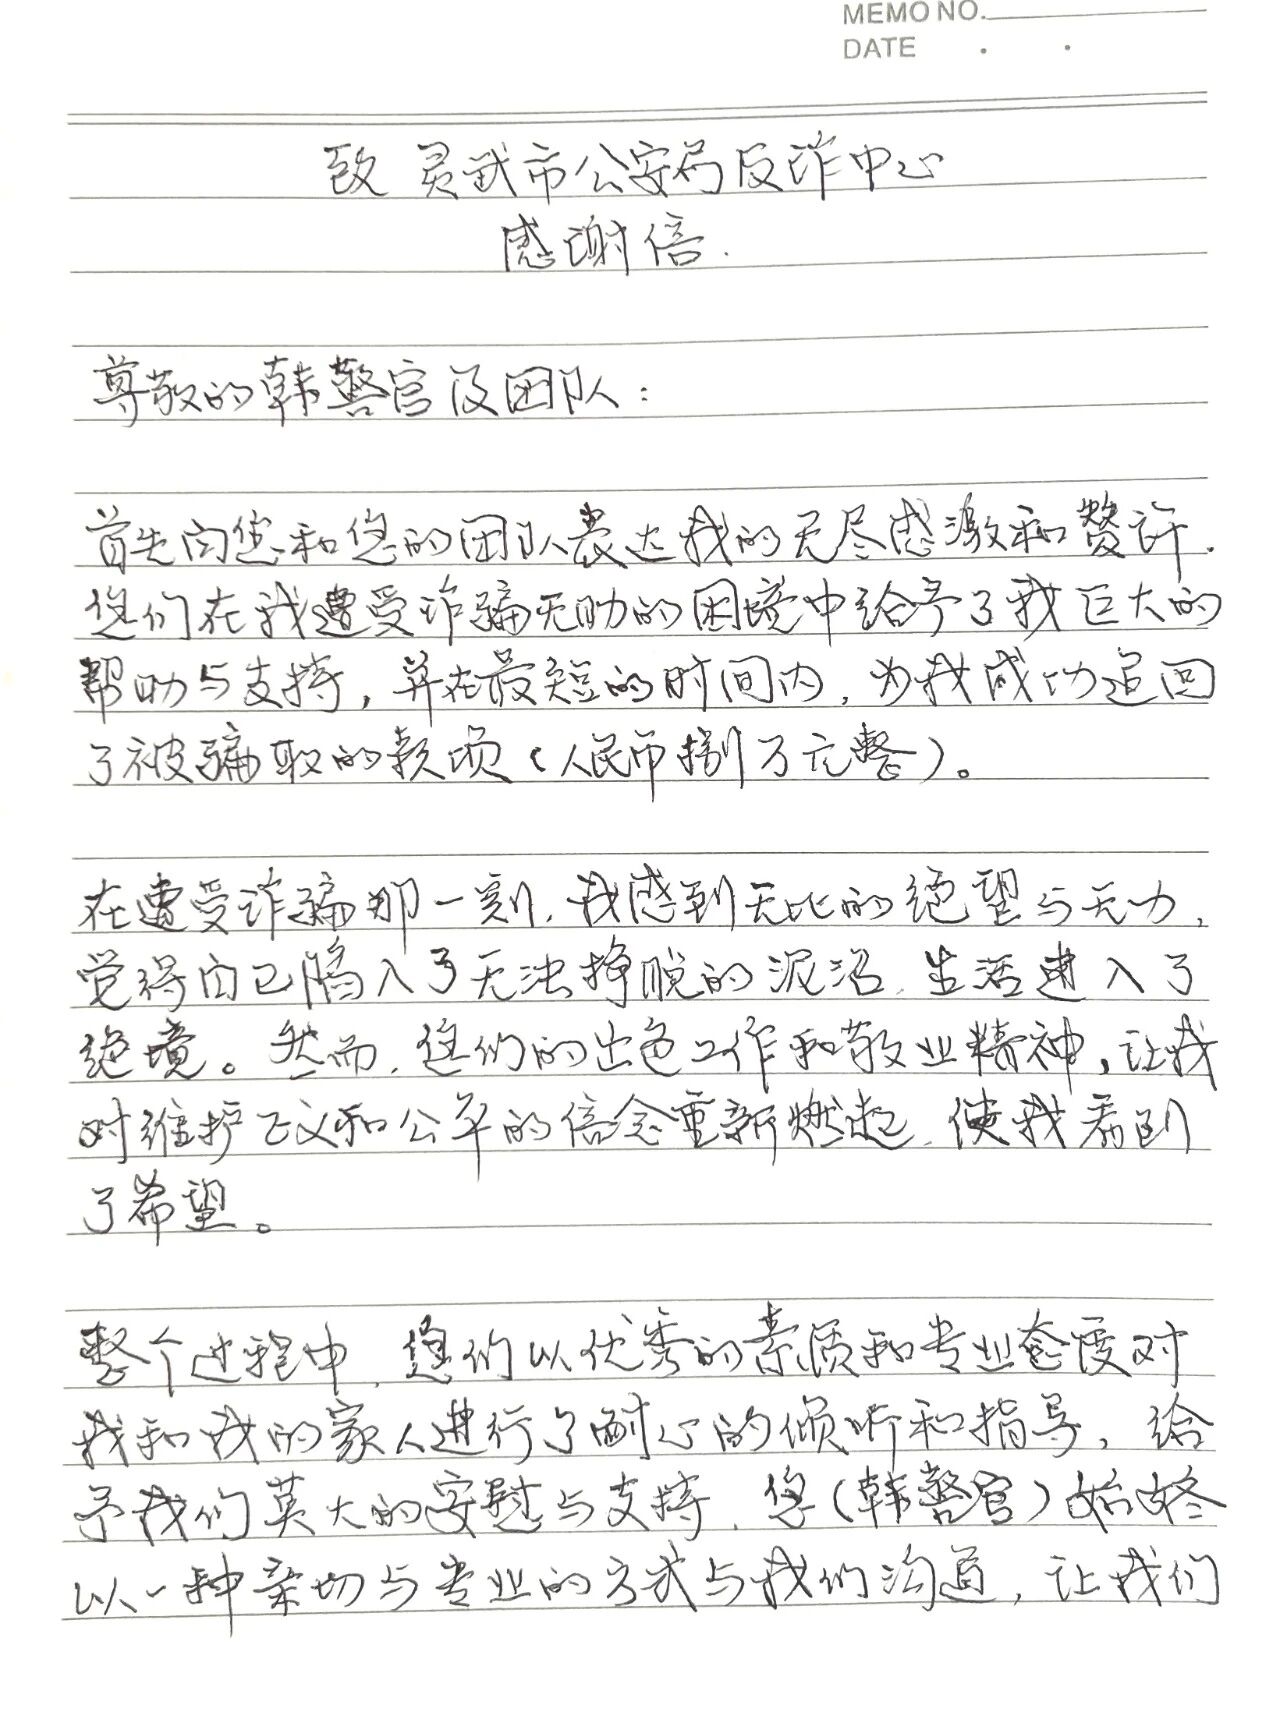 MEMO NO.
DATE . .
致 灵武市公安局反诈中心
感谢信.
尊敬的韩警官及团队：
首先向您和您的团队表达我的无尽感激和赞许.
您们在我遭受诈骗无助的困境中给予了我巨大的
帮助与支持，并在最短的时间内，为我成功追回
了被骗取的款项（人民币捌万元整）。
在遭受诈骗那一刻，我感到无比的绝望与无力，
觉得自己陷入了无法挣脱的泥沼，生活进入了
绝境。然而，您们的出色工作和敬业精神，让我
对维护正义和公平的信念重新燃起，使我看到
了希望。
整个过程中，您们以优秀的素质和专业态度对
我和我的家人进行了耐心的倾听和指导，给
予我们莫大的安慰与支持，您（韩警官）始终
以一种亲切与专业的方式与我们沟通，让我们